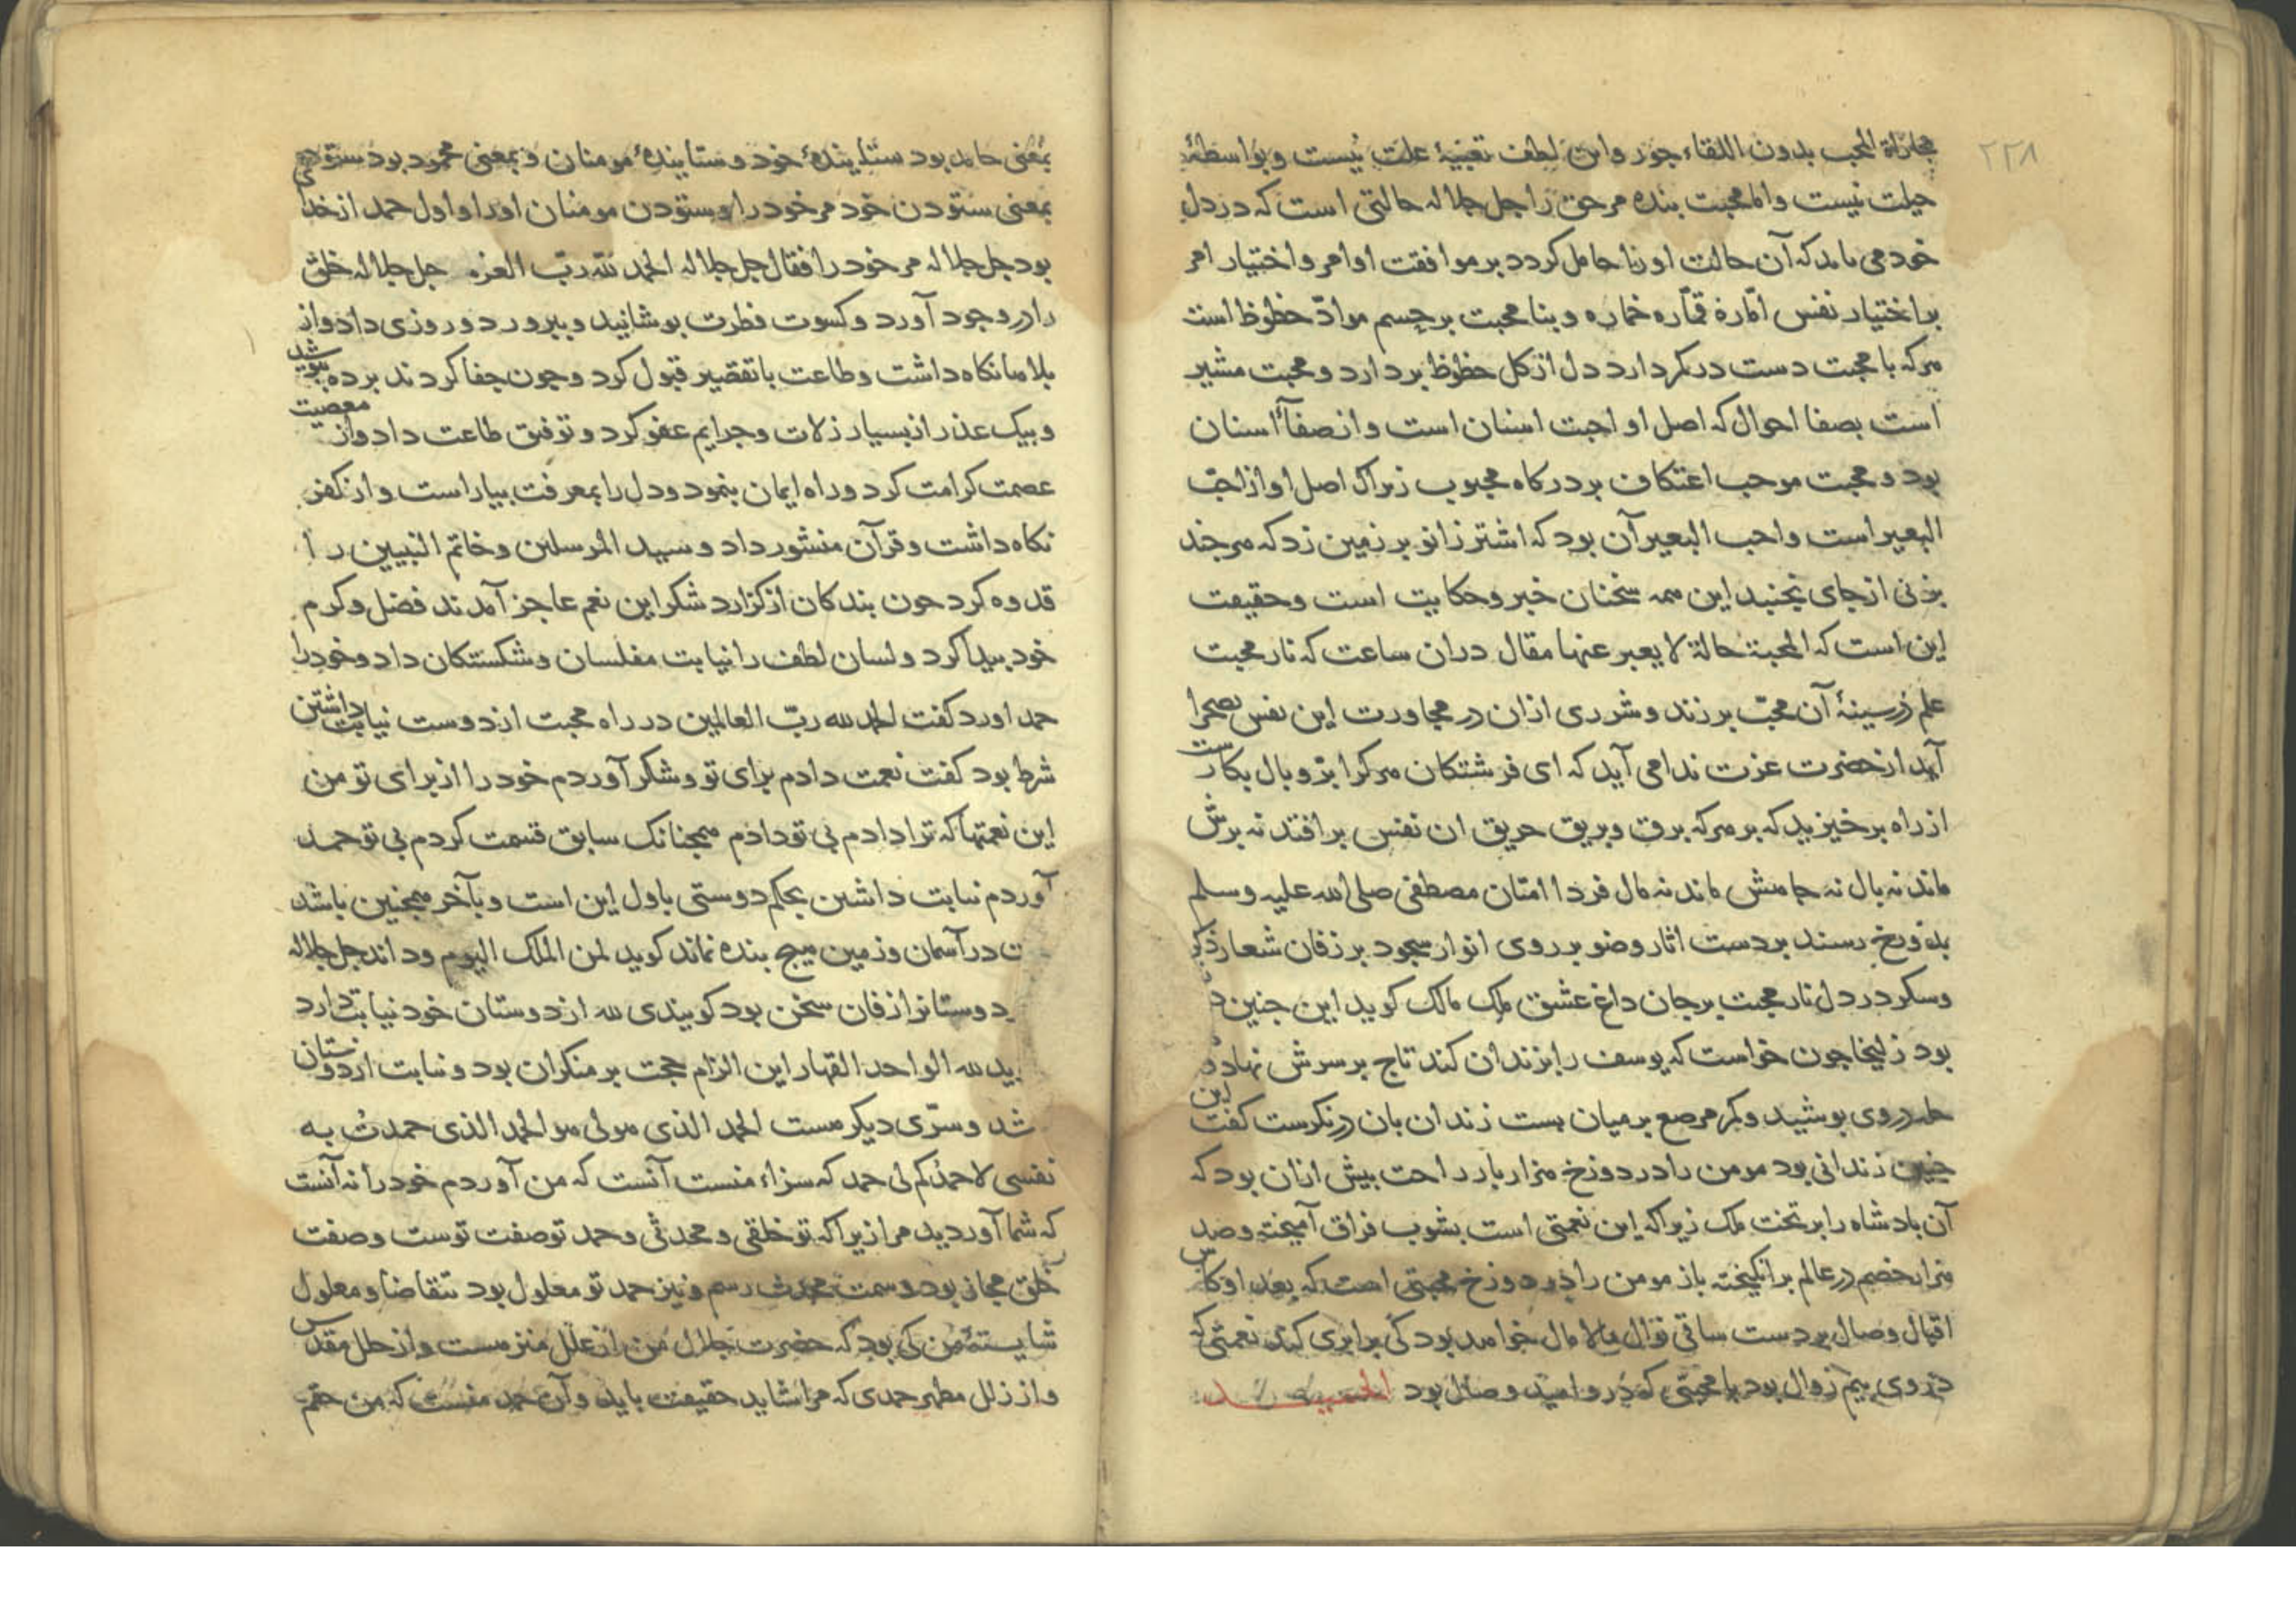 ۲۲۸
مجازاة المحب بدون اللقاء جور واین لطف تعبیهٔ علت نیست وبواسطهٔ
حیلت نیست واما محبت بنده مر حق را جل جلاله حالتی است که در دل
خود می یابد که آن حالت اورا حامل کردد بر موافقت اوامر واختیار امر
بر اختیار نفس امّارهٔ قمّاره خماره وبنا محبت بر حسم موادّ حظوظ است
هرکه با محبت دست در کمر دارد دل از کل حظوظ بر دارد ومحبت مشیر
است بصفا احوال که اصل او احبت اسنان است وان صفآ اسنان
بود ومحبت موجب اعتکاف بر درکاه محبوب زیراک اصل او از احبّ
البعیر است واحب البعیر آن بود که اشتر زانو بر زمین زد که هرچند
بزنی از جای نجنبد این همه سخنان خبر وحکایت است وحقیقت
این است که المحبة حالة لا یعبر عنها مقال دران ساعت که نار محبت
علم در سینهٔ آن محبّ بر زند وشرری ازان در مجاورت این نفس بصحرا
آید از حضرت عزت ندا می آید که ای فرشتکان هرکرا پرّ وبال بکارست
از راه برخیزید که بر هرکه برق وبریق حریق ان نفس بر افتد نه برش
ماند نه بال نه جامش ماند نه مال فردا امتان مصطفی صلی الله علیه وسلم
بدوزخ رسند بر دست اثار وضو بر روی انوار سجود بر زفان شعار ذکر
وسکر در دل نار محبت بر جان داغ عشق ملک مالک کوید این جنین
بود زلیخا جون خواست که یوسف را بزندان کند تاج بر سرش نهاد و
حله در وی بوشید وکمر مرصع بر میان بست زندان بان در نکرست کفت این
جنین زندانی بود مومن را در دوزخ هزار بار راحت بیش ازان بود که
آن بادشاه را بر تخت ملک زیراکه این نعمتی است بشوب فراق آمیخته وصد
هزار خصم در عالم بر انکیخته باز مومن را در دوزخ محبتی است که بعد او کاس
اقبال وصال بر دست ساقی نوال مالا مال خواهد بود کی برابری کند نعمتی که
در وی بیم زوال بود با محبتی که در و امید وصال بود الحمید
بمعنی حامد بود ستایندهٔ خود وستایندهٔ مومنان وبمعنی محمود بود ستودهٔ
بمعنی ستودن خود مر خود را وستودن مومنان اورا واول حمد از خدای
بود جل جلاله مر خود را فقال جل جلاله الحمد لله ربّ العزه جل جلاله خلق
را در وجود آورد وکسوت فطرت بوشانید وببرورد وروزی داد واز
بلاها نکاه داشت وطاعت با تقصیر قبول کرد وجون جفا کردند برده بپوشید
وبیک عذر از بسیار زلات وجرایم عفو کرد وتوفیق طاعت داد واز معصیت
عصمت کرامت کرد وراه ایمان بنمود ودل را بمعرفت بیاراست واز کفر
نکاه داشت وقرآن منشور داد وسید المرسلین وخاتم النبیین را
قدوه کرد جون بندکان از کزارد شکر این نعم عاجز آمدند فضل وکرم
خود بیدا کرد ولسان لطف را نیابت مفلسان وشکستکان داد وخود را
حمد اورد کفت الحمد لله ربّ العالمین در راه محبت از دوست نیابت داشتن
شرط بود کفت نعمت دادم برای تو وشکر آوردم خود را از برای تو من
این نعمتها که ترا دادم بی تو دادم همجنانک سابق قسمت کردم بی تو حمد
آوردم نیابت داشتن بحکم دوستی باول این است وبآخر همجنین باشد
ت در آسمان وزمین هیج بنده نماند کوید لمن الملک الیوم وداند جل جلاله
دوستانرا زفان سخن بود کویندی لله از دوستان خود نیابت دارد
ید لله الواحد القهار این الزام حجت بر منکران بود ونیابت از دوستان
شد وسرّی دیکر هست الحمد الذی هو لی هو الحمد الذی حمدت به
نفسی لا حمدکم لی حمد که سزاء منست آنست که من آوردم خود را نه آنست
که شما آوردید مرا زیراکه تو خلقی ومحدثی وحمد تو صفت توست وصفت
خلق مجازی بود وسمت محدث رسم ونیز حمد تو معلول بود بتقاضا ومعلول
شایستهٔ من کی بود که حضرت جلال من از علل منزهست واز خلل مقدس
واز زلل مطهر حمدی که مرا شاید حقیقت باید وآن حمد منست که من حقم